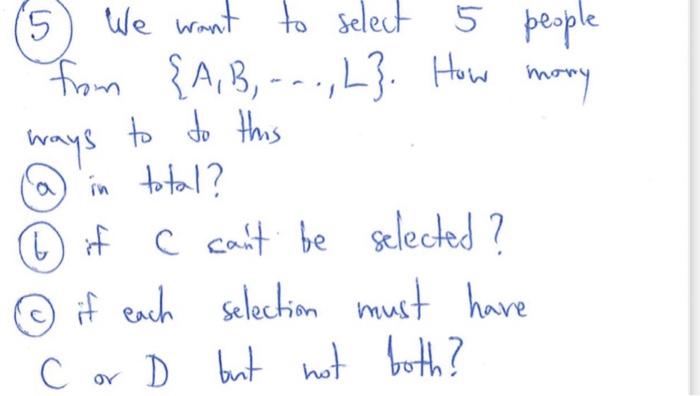 5 We want to select 5 people
from {A, B, ---., L}. How many
ways to do this
a in total?
b if C can't be selected?
c if each selection must have
C or D but not both?